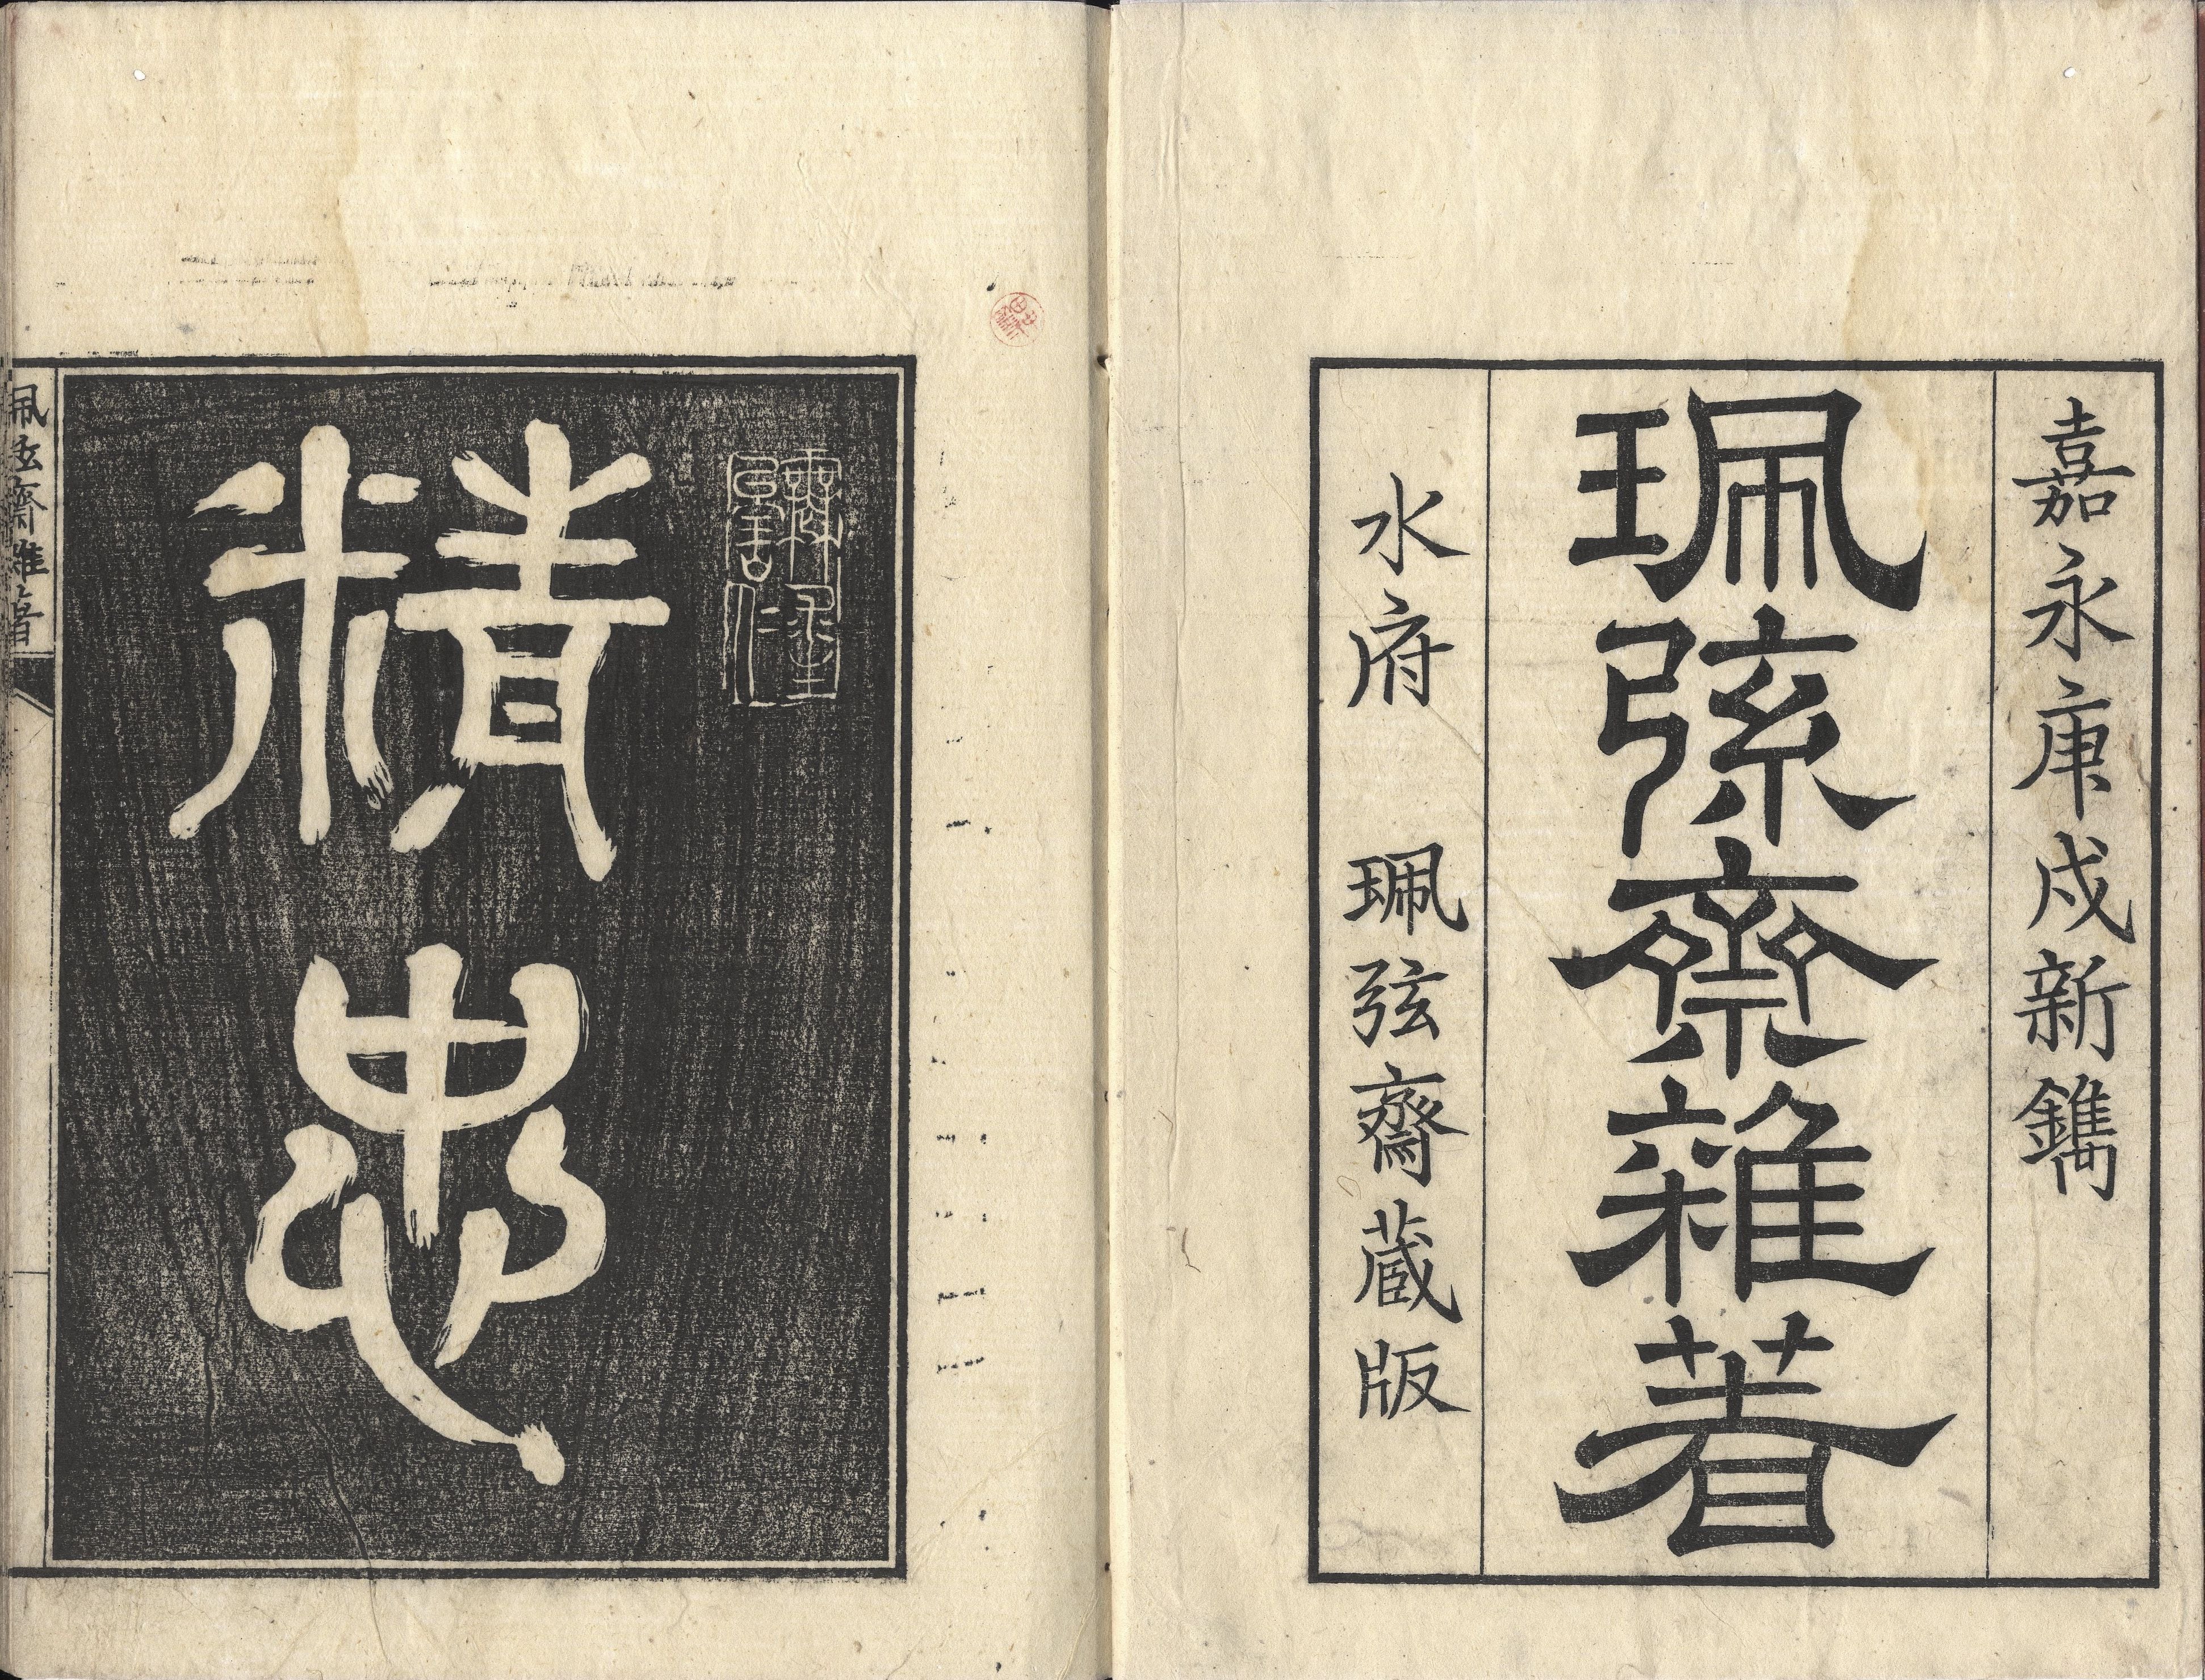 嘉永庚戌新鐫
珮弦齋雜著
水府 珮弦齋蔵版
精忠
珮弦齋雜著